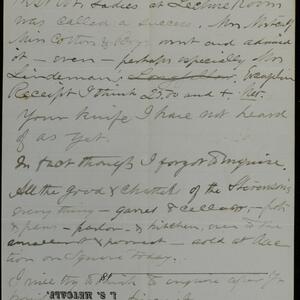 Ladies at Lecture Room
was called a success. Mrs Metcalf
Miss Cotton & Keys went and admired
it – even – perhaps especially Mrs
Lindeman,
Receipt I think £5.00 and +.
Your knife I have not heard
of as yet.
In fact though I forgot to inquire.
All the good & chattels of the Stevensons
everything – garret & cellar – pots
& pans – parlor & kitchen, even to the
smallest & poorest – sold at Auc
tion on Square today.
I will try to think to inquire after
L. S. METCALF.